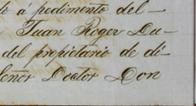 á pedimento del
Juan Roger Du-
del propietario de di-
Señor Doctor Don